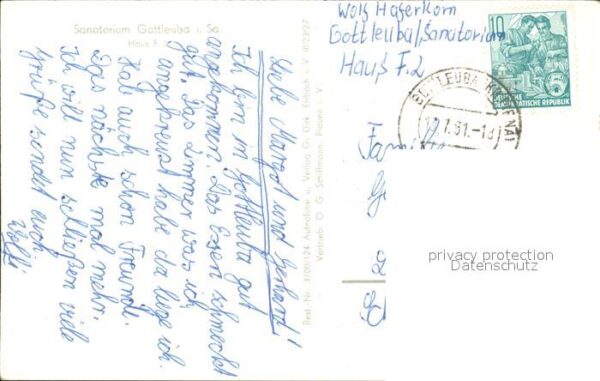 Sanatorium Gottleuba i. Sa.
Haus F 2
Liebe Margot und Gerhard!
Ich bin in Gottleuba gut
angekommen. Das Essen schmeckt
gut. Das Zimmer was ich
angekreuzt habe da liege ich.
Hab auch schon Freunde.
Das nächste mal mehr.
Ich will nun schließen viele
Grüße sendet euch
Wolf
Best. Nr. 3/00124 Aufnahme u. Verlag G. Dirk, Erlbach i. V. III/23/27
Vertrieb: O. G. Schiffmann, Plauen i. V.
Wolf Haferkorn
Gottleuba/Sanatorium
Hauß F.2
10
DEUTSCHE
DEMOKRATISCHE REPUBLIK
5
.7.61.-18
Familie
privacy protection
Datenschutz